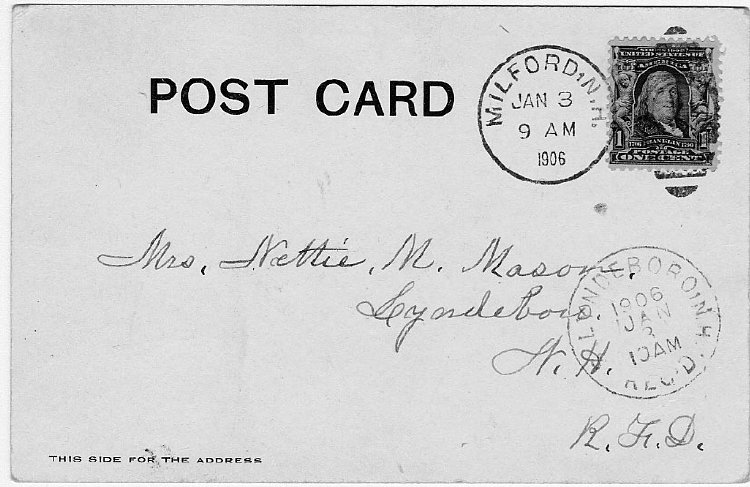 POST CARD
MILFORD, N.H.
JAN 3
9 AM
1906
SERIES 1902
UNITED STATES OF
AMERICA
1706 FRANKLIN 1790
1
POSTAGE
ONE CENT
Mrs. Nettie M. Mason,
Lyndeboro.
N. H.
R. F. D.
LYNDEBORO, N.H.
1906
JAN
3
10AM
REC'D.
THIS SIDE FOR THE ADDRESS